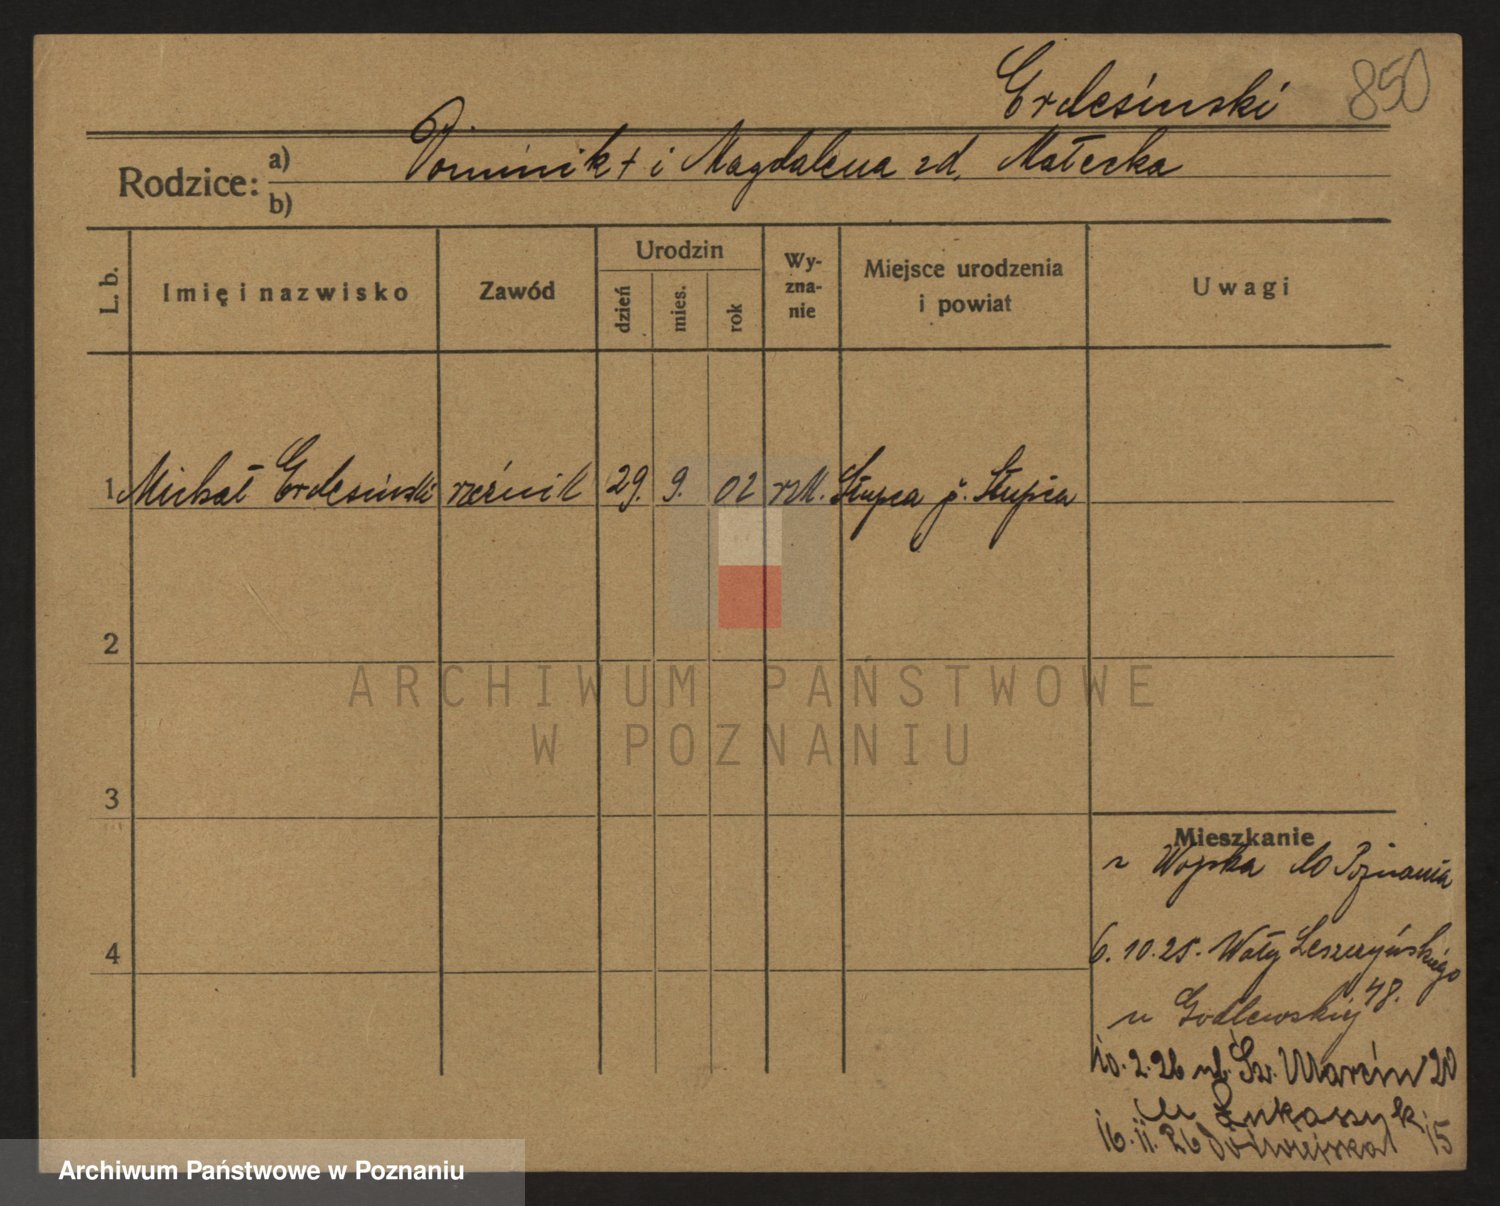 Erdesinski 850
Rodzice: a) Dominik + i Magdalena zd. Małecka
b)
L. b. Imię i nazwisko Zawód Urodzin dzień mies. rok Wy-zna-nie Miejsce urodzenia i powiat Uwagi
1 Michał Erdesinski rzeźnik 29. 9. 02 rzk. Słupca p. Słupca
2
ARCHIWUM PAŃSTWOWE
W POZNANIU
3
Mieszkanie
z Wojska do Poznania
4
6.10.25. Wały Leszczyńskiego
u Godlewskiej 48.
10.2.26 ul. Św. Marcin 20
u Łukaszyk
16.11.26 15
Archiwum Państwowe w Poznaniu